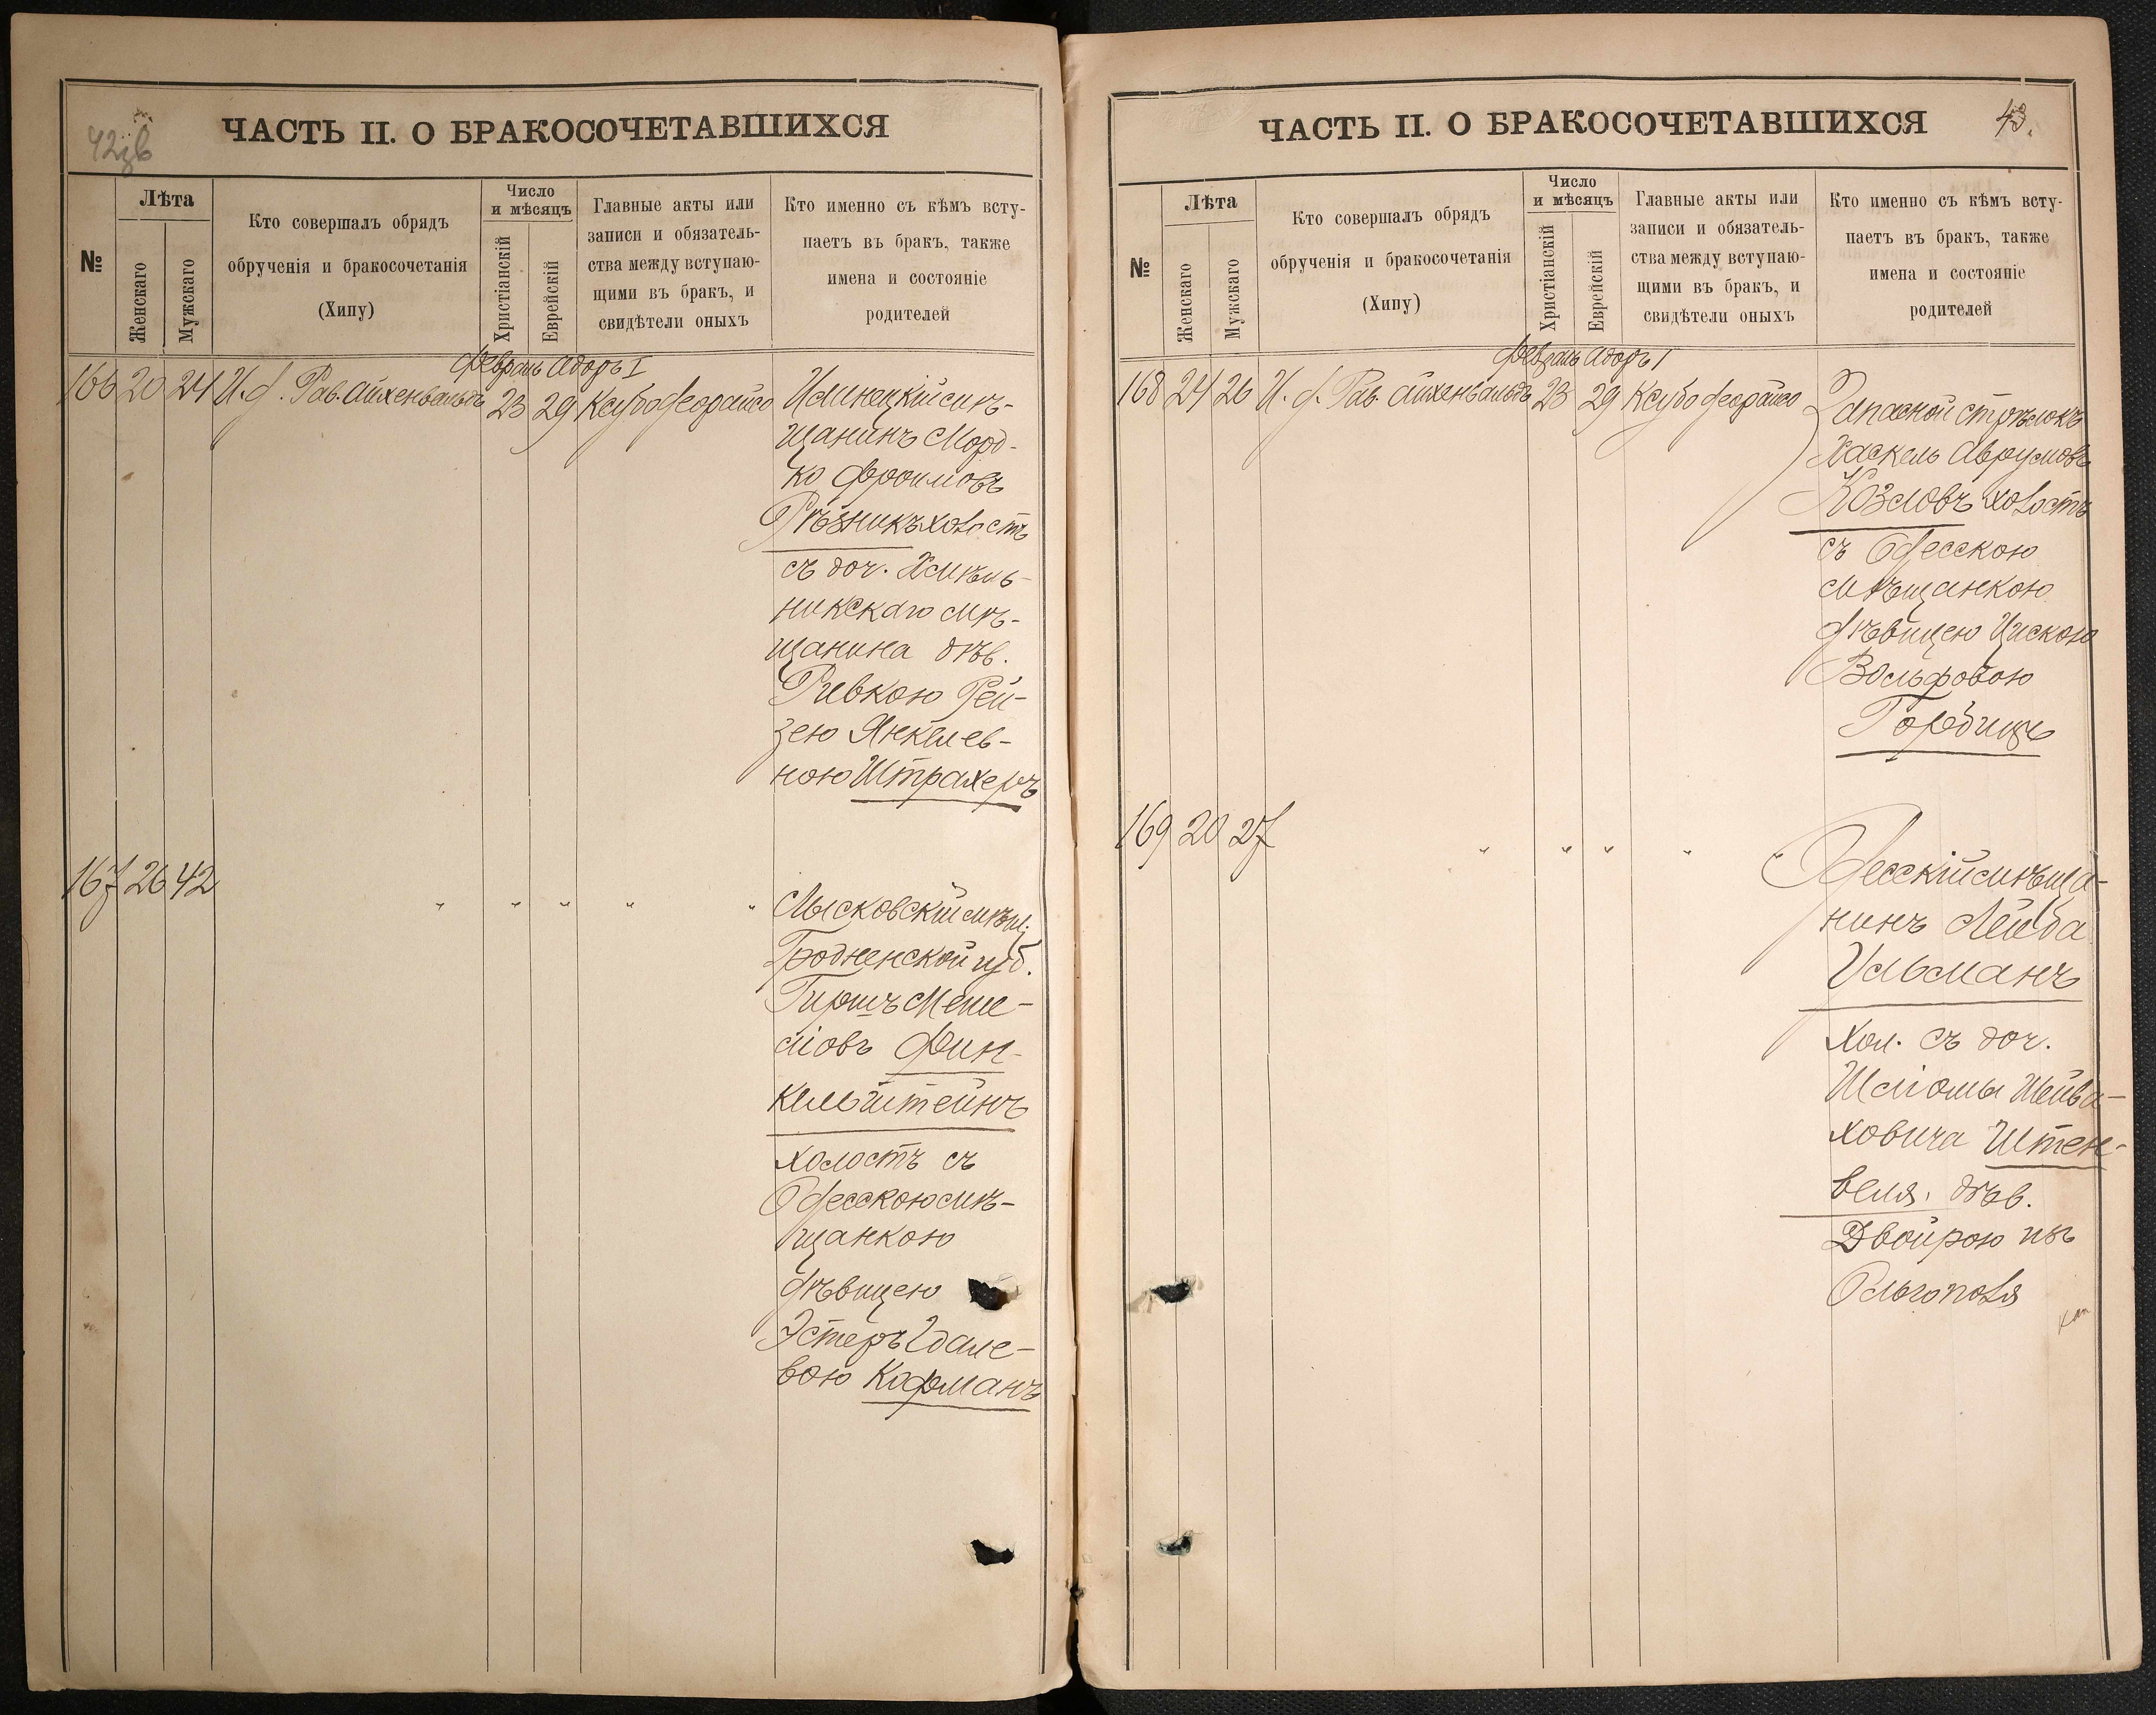 42зв
ЧАСТЬ II. О БРАКОСОЧЕТАВШИХСЯ
№
Лѣта
Женскаго
Мужскаго
Кто совершалъ обрядъ
обрученія и бракосочетанія
(Хипу)
Число
и мѣсяцъ
Христіанскій
Еврейскій
Главные акты или
записи и обязатель-
ства между вступаю-
щими въ бракъ, и
свидѣтели оныхъ
Кто именно съ кѣмъ всту-
паетъ въ бракъ, также
имена и состояніе
родителей
Февраль Адоръ I
166 20 24 И. д. Рав. Айхенвальдъ 23 29 Ксубо деорайсо Илинецкій мѣ-
щанинъ Морд-
ко Фроимовъ
Рѣзникъ холостъ
съ доч. Хмѣль-
никскаго мѣ-
щанина дѣв.
Ривкою Рей-
зею Янкелев-
ною Штрахеръ
167 26 42 " " " " " Лысковскій мѣщ.
Гродненской губ.
Гиршъ Меше-
ліовъ Фин-
кельштейнъ
холостъ съ
Одесскою мѣ-
щанкою
дѣвицею
Эстеръ Гдале-
вою Кофманъ
43.
ЧАСТЬ II. О БРАКОСОЧЕТАВШИХСЯ
№
Лѣта
Женскаго
Мужскаго
Кто совершалъ обрядъ
обрученія и бракосочетанія
(Хипу)
Число
и мѣсяцъ
Христіанскій
Еврейскій
Главные акты или
записи и обязатель-
ства между вступаю-
щими въ бракъ, и
свидѣтели оныхъ
Кто именно съ кѣмъ всту-
паетъ въ бракъ, также
имена и состояніе
родителей
Февраль Адоръ I
168 24 26 И. д. Рав. Айхенвальдъ 23 29 Ксубо деорайсо Запасной стрѣлокъ
Хаскель Аврумовъ
Козловъ холостъ
съ Одесскою
мѣщанкою
дѣвицею
Вольфовою
Городищъ
169 20 27 " " " " " Одесскій мѣща-
нинъ Лейба
Ульманъ
Хол. съ доч.
Шліомы Шейва-
ховича Штен-
веля, дѣв.
Двойрою изъ
Ольгополя